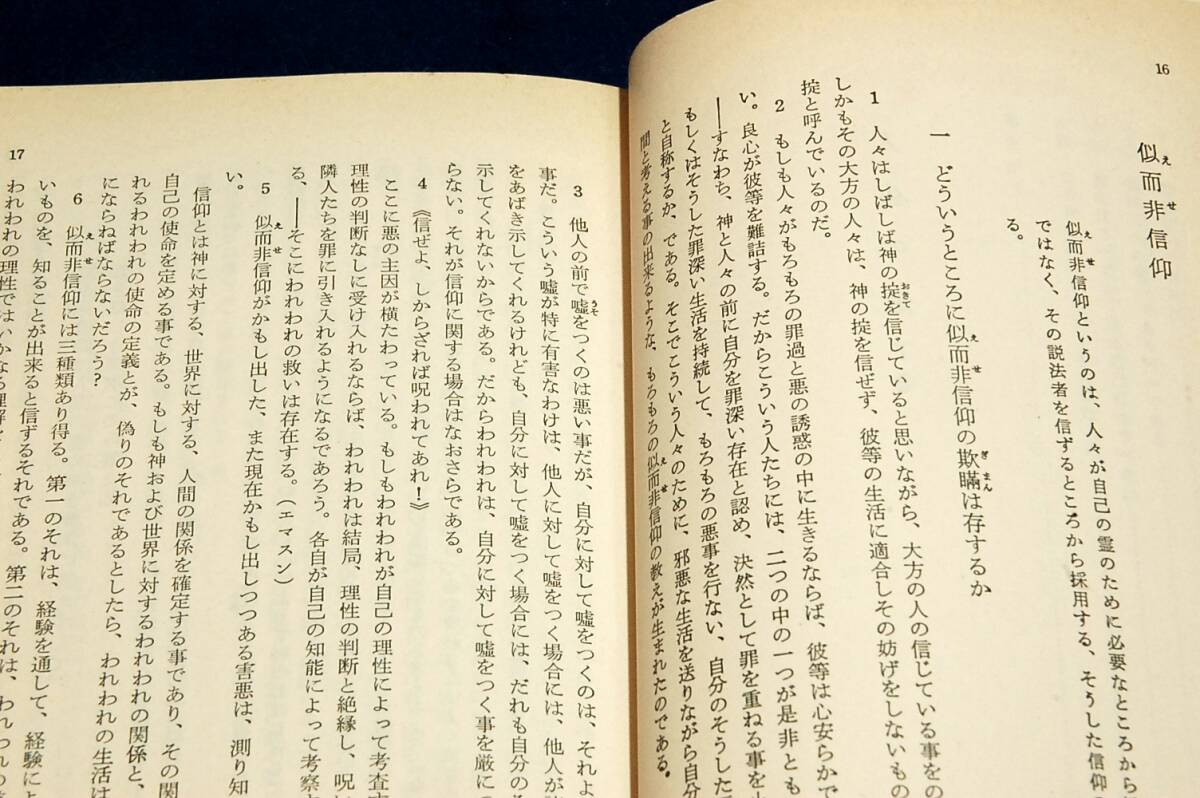 16
似而非信仰
えせ
似而非信仰というのは、人々が自己の霊のために必要なところから
えせ
ではなく、その説法者を信ずるところから採用する、そうした信仰の
る。
一 どういうところに似而非信仰の欺瞞は存するか
えせ
ぎまん
1 人々はしばしば神の掟を信じていると思いながら、大方の人の信じている事を
おきて
しかもその大方の人々は、神の掟を信ぜず、彼等の生活に適合しその妨げをしないもの
掟と呼んでいるのだ。
2 もしも人々がもろもろの罪過と悪の誘惑の中に生きるならば、彼等は心安らかで
い。良心が彼等を難詰する。だからこういう人たちには、二つの中の一つが是非とも
――すなわち、神と人々の前に自分を罪深い存在と認め、決然として罪を重ねる事を
もしくはそうした罪深い生活を持続して、もろもろの悪事を行ない、自分のそうした
と自称するか、である。そこでこういう人々のために、邪悪な生活を送りながら自分
間と考える事の出来るような、もろもろの似而非信仰の教えが生まれたのである。
えせ
17
3 他人の前で嘘をつくのは悪い事だが、自分に対して嘘をつくのは、それよ
うそ
事だ。こういう嘘が特に有害なわけは、他人に対して嘘をつく場合には、他人が
をあばき示してくれるけれども、自分に対して嘘をつく場合には、だれも自分の
示してくれないからである。だからわれわれは、自分に対して嘘をつく事を厳に
らない。それが信仰に関する場合はなおさらである。
4 《信ぜよ、しからざれば呪われてあれ！》
ここに悪の主因が横たわっている。もしもわれわれが自己の理性によって考査
理性の判断なしに受け入れるならば、われわれは結局、理性の判断と絶縁し、呪
隣人たちを罪に引き入れるようになるであろう。各自が自己の知能によって考察
る、――そこにわれわれの救いは存在する。（エマスン）
5 似而非信仰がかもし出した、また現在かもし出しつつある害悪は、測り知
えせ
い。
信仰とは神に対する、世界に対する、人間の関係を確定する事であり、その関
自己の使命を定める事である。もしも神および世界に対するわれわれの関係と、
れるわれわれの使命の定義とが、偽りのそれであるとしたら、われわれの生活は
にならねばならないだろう？
6 似而非信仰には三種類あり得る。第一のそれは、経験を通して、経験によ
えせ
いものを、知ることが出来ると信ずるそれである。第二のそれは、われわれの
われわれの理性ではいかなる理解